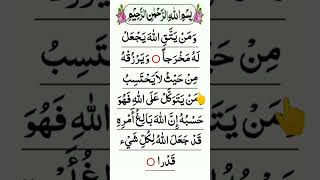 بِسْمِ اللهِ الرَّحْمٰنِ الرَّحِيْمِ
وَمَنْ يَتَّقِ اللهَ يَجْعَلْ
لَهُ مَخْرَجاً ۝ وَيَرْزُقْهُ
مِنْ حَيْثُ لَا يَحْتَسِبُ
مَنْ يَتَوَكَّلْ عَلَى اللهِ فَهُوَ
حَسْبُهُ إِنَّ اللهَ بَالِغُ أَمْرِهِ
قَدْ جَعَلَ اللهُ لِكُلِّ شَيْءٍ
قَدْرا ۝